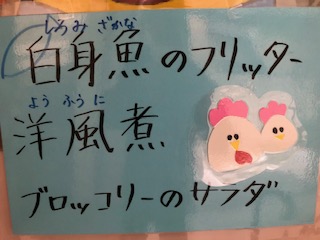 しろみ ざかな
白身魚のフリッター
ようふうに
洋風煮
ブロッコリーのサラダ